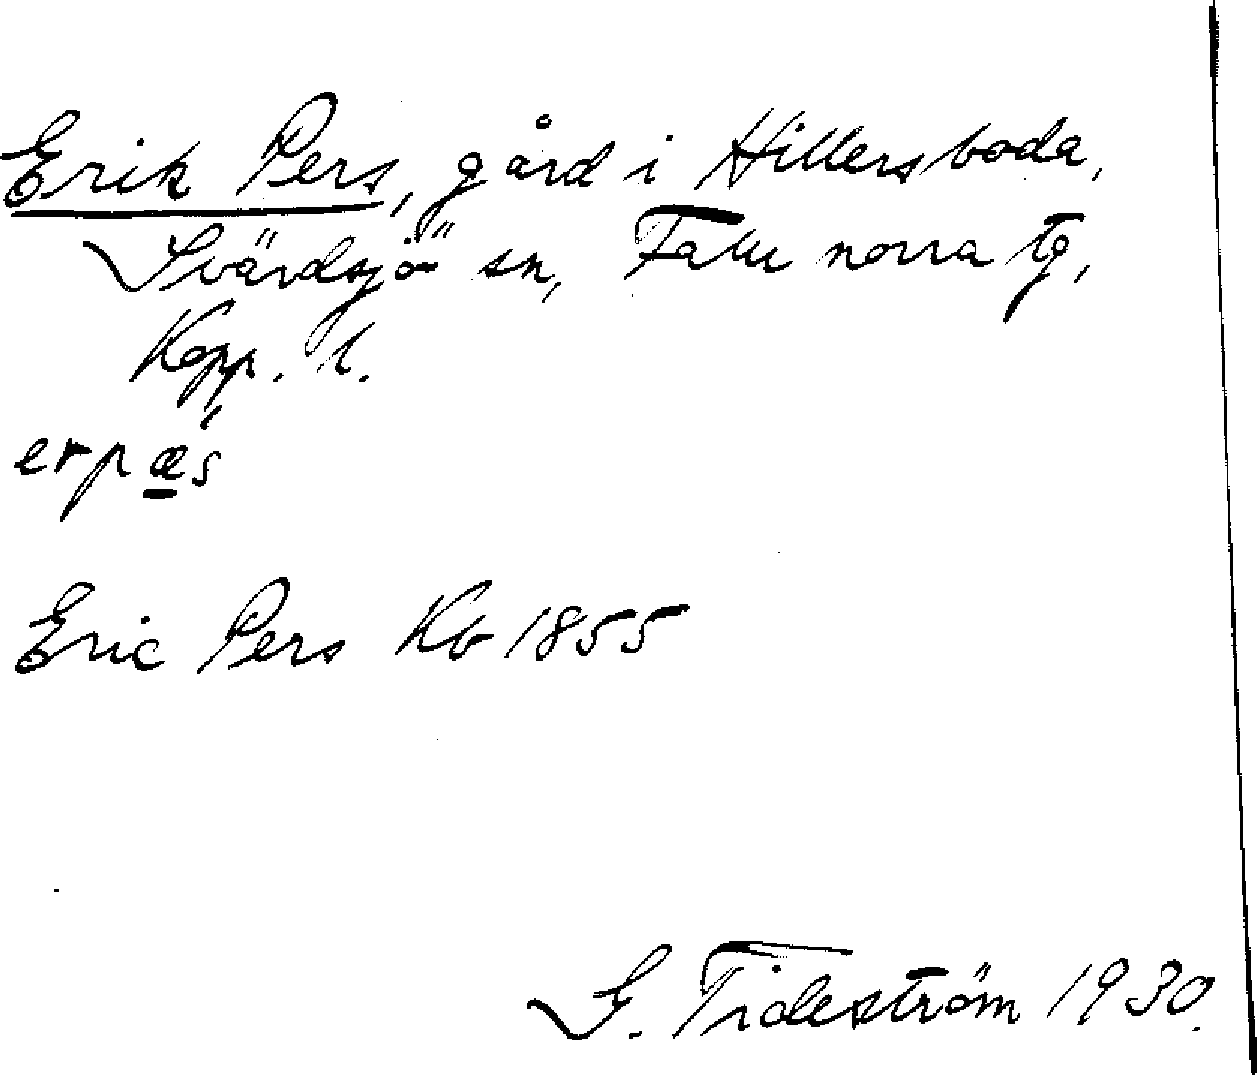 Erik Pers, gård i Hillersboda,
Svärdsjö sn, Falu norra tg,
Kopp. l.
erpæ̲ś
Eric Pers Kb 1855
G. Tideström 1930.